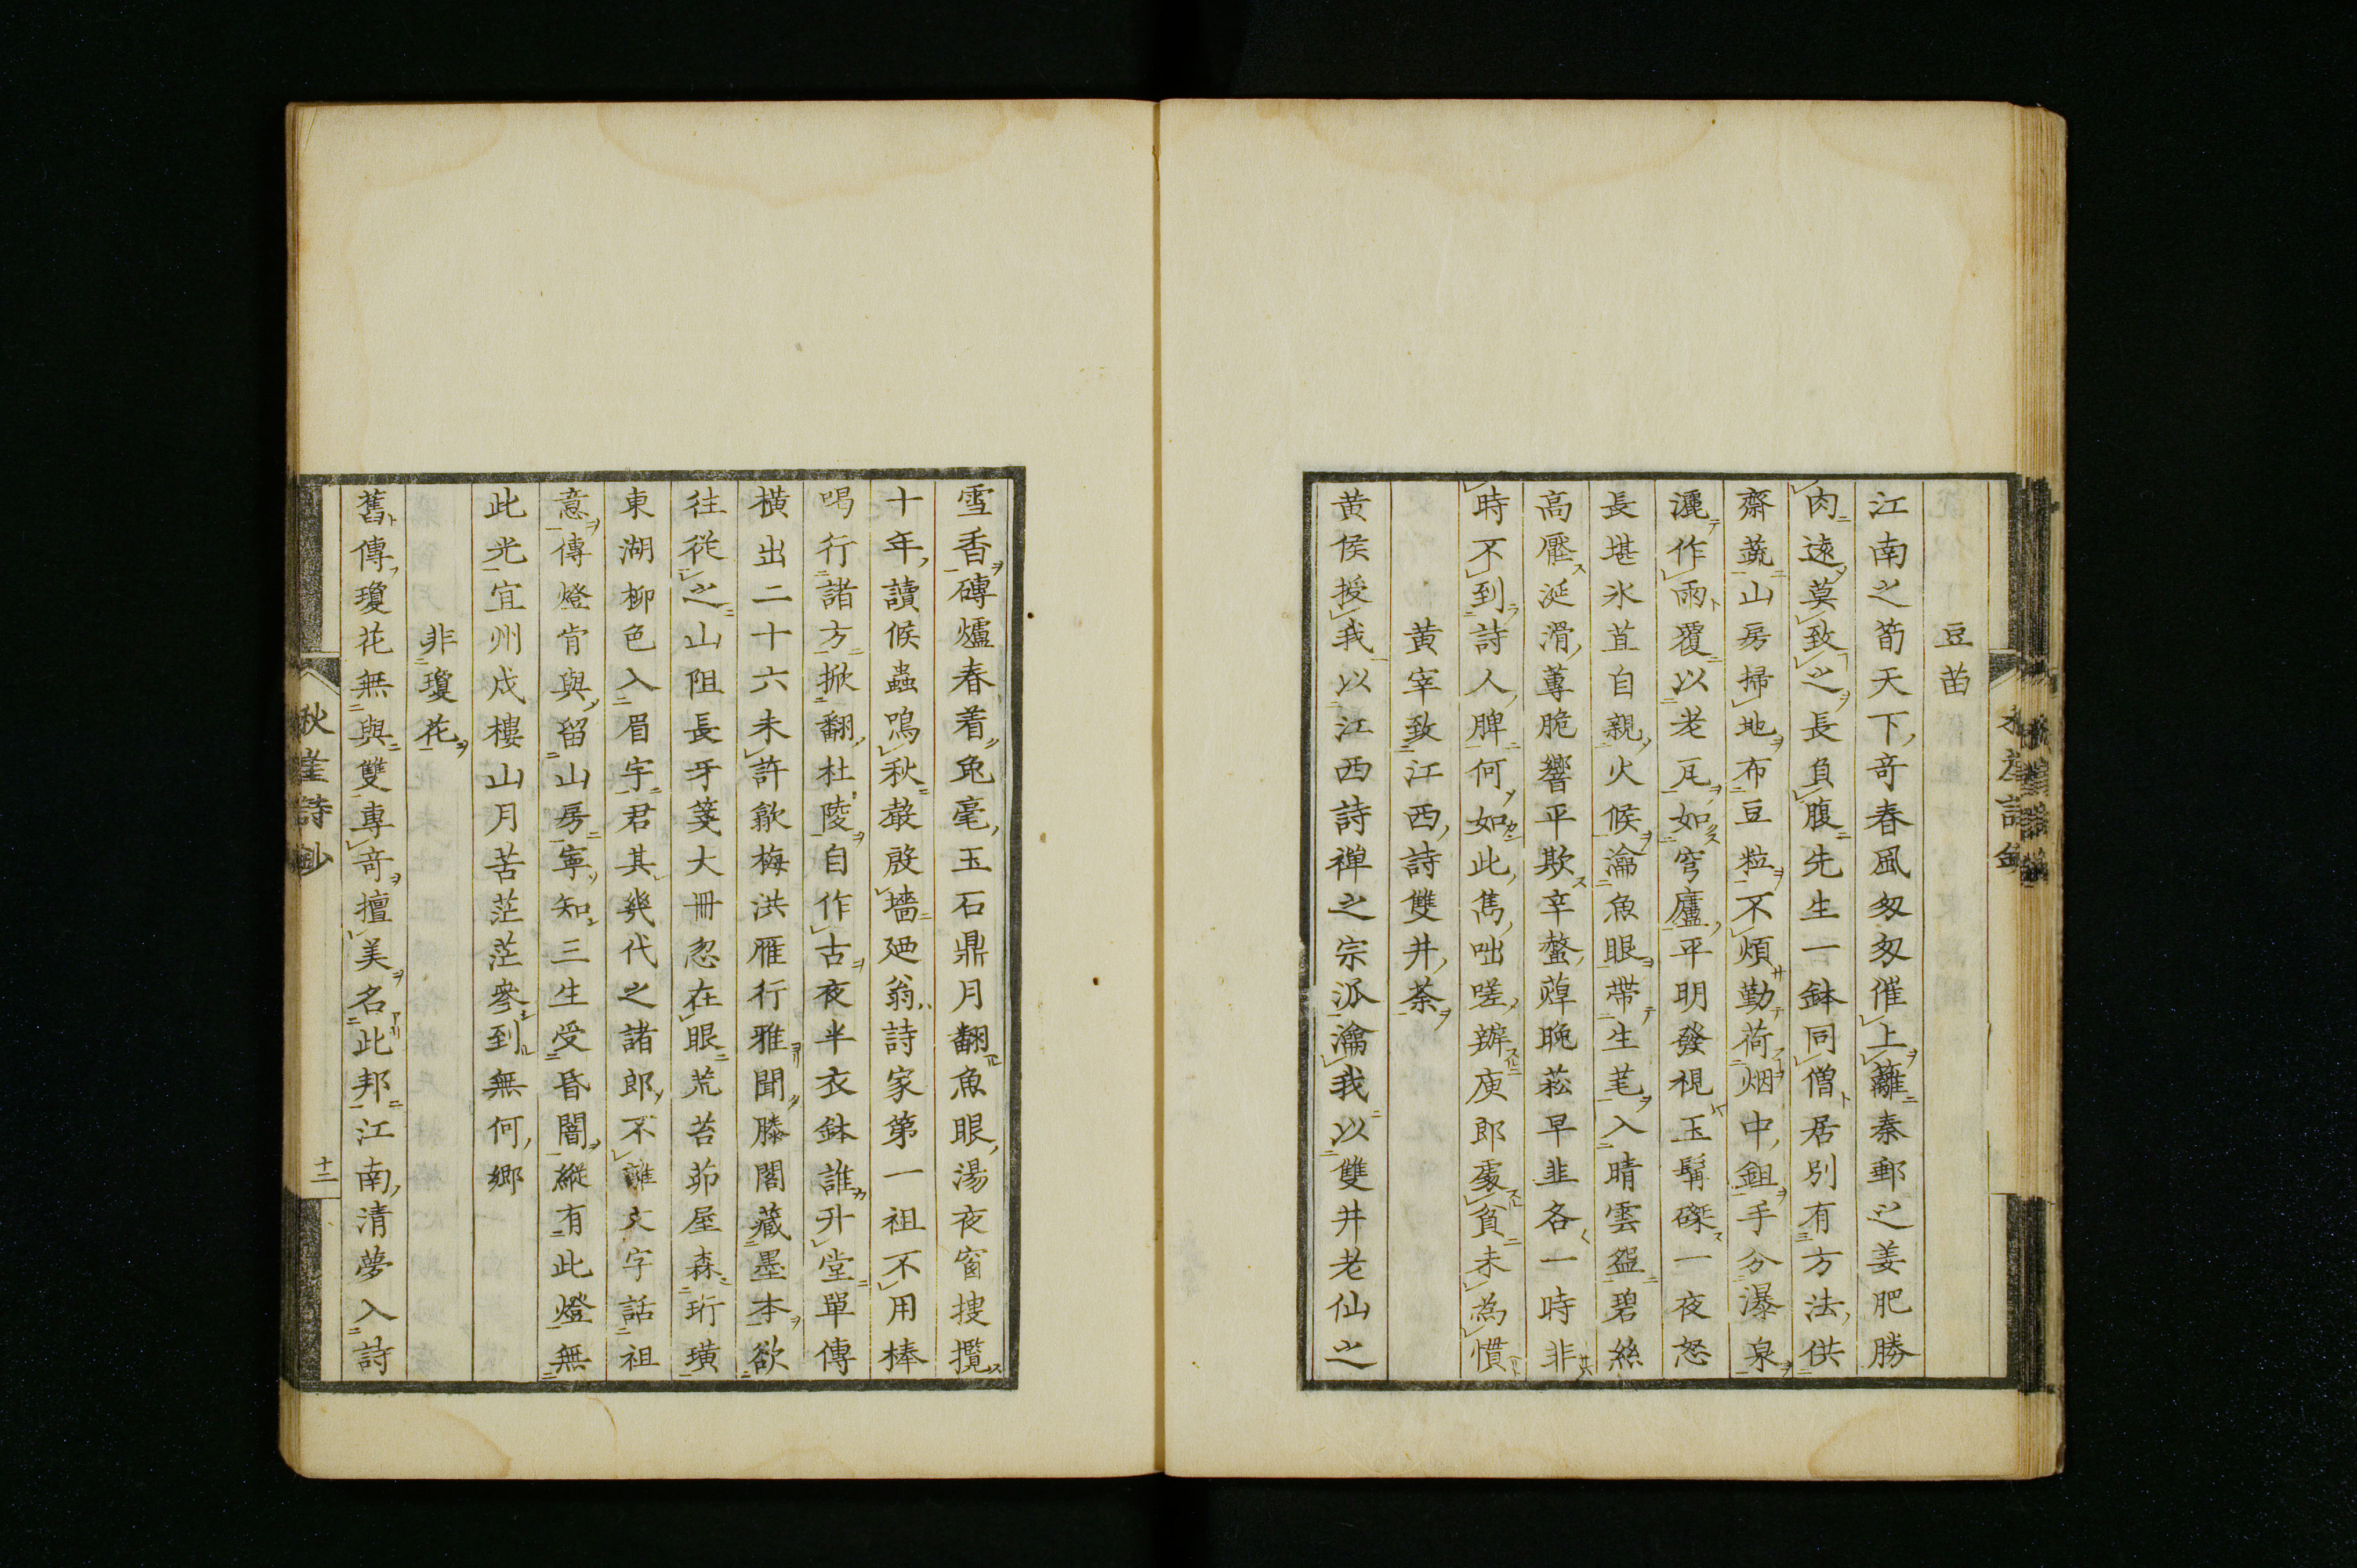 豆苗
江南之筍天下奇春風匆匆催上籬秦郵之姜肥勝
肉遠莫致之長負腹先生一鉢同僧居別有方法供
齋蔬山房掃地布豆粒不煩勤荷烟中鉏手分瀑泉
灑作雨覆以老瓦如穹廬平明發視玉髯磔一夜怒
長堪氷苴自親火候瀹魚眼帶生芼入晴雲盌碧絲
高壓涎滑蓴脆響平欺辛螫蔊晚菘早韭各一時非
時不到詩人脾何如此雋咄嗟辦庾郎處貧未為慣
黄宰致江西詩雙井茶
黄侯授我以江西詩禅之宗派瀹我以雙井老仙之
雪香磚爐春着兔毫玉石鼎月翻魚眼湯夜窗搜攬
十年讀候蟲鳴秋嚴殷墻廼翁詩家第一祖不用棒
喝行諸方掀翻杜陵自作古夜半衣鉢誰升堂單傳
横出二十六未許歙梅洪雁行雅聞滕閣藏墨本欲
往從之山阻長牙箋大冊忽在眼荒苔茆屋森珩璜
東湖柳色入眉宇君其幾代之諸郎不離文字話祖
意傳燈肯與留山房寧知三生受昏闇縱有此燈無
此光宜州戍樓山月苦茫茫參到無何鄉
非瓊花
舊傳瓊花無與雙專奇擅美名此邦江南清夢入詩
秋崖詩鈔
十二